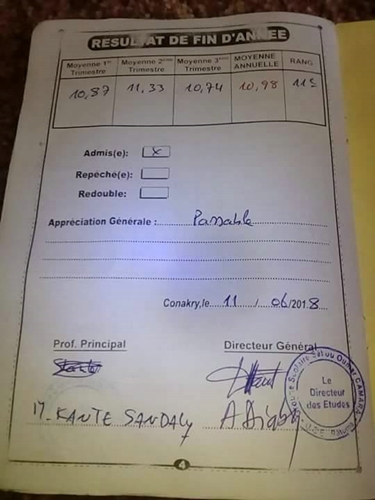 RESULTAT DE FIN D'ANNEE
Moyenne 1er Trimestre Moyenne 2ème Trimestre Moyenne 3ème Trimestre MOYENNE ANNUELLE RANG
10,87 11,33 10,74 10,98 11è
Admis(e): x
Repêché(e):
Redouble:
Appréciation Générale : Passable
Conakry,le 11 / 06/2018
Prof. Principal Directeur Général
Le Directeur des Etudes
M. KANTE SANDALY
4